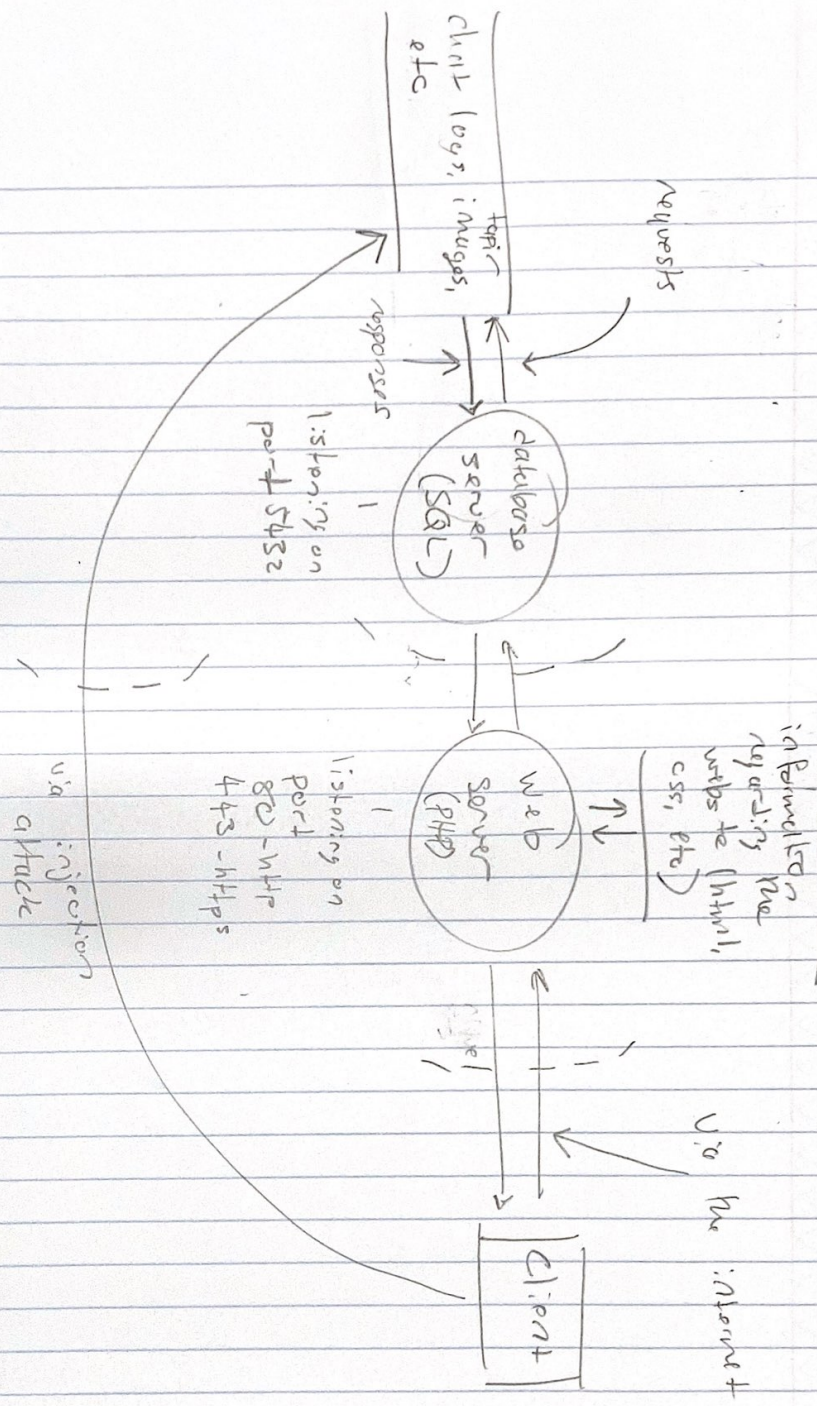 requests
chat logs, images,
topic
etc
responses
database
server
(SQL)
listening on
port 5432
information
regarding the
website (html,
css, etc)
web
server
(PHP)
listening on
port
80 - http
443 - https
via the internet
Client
via injection
attack